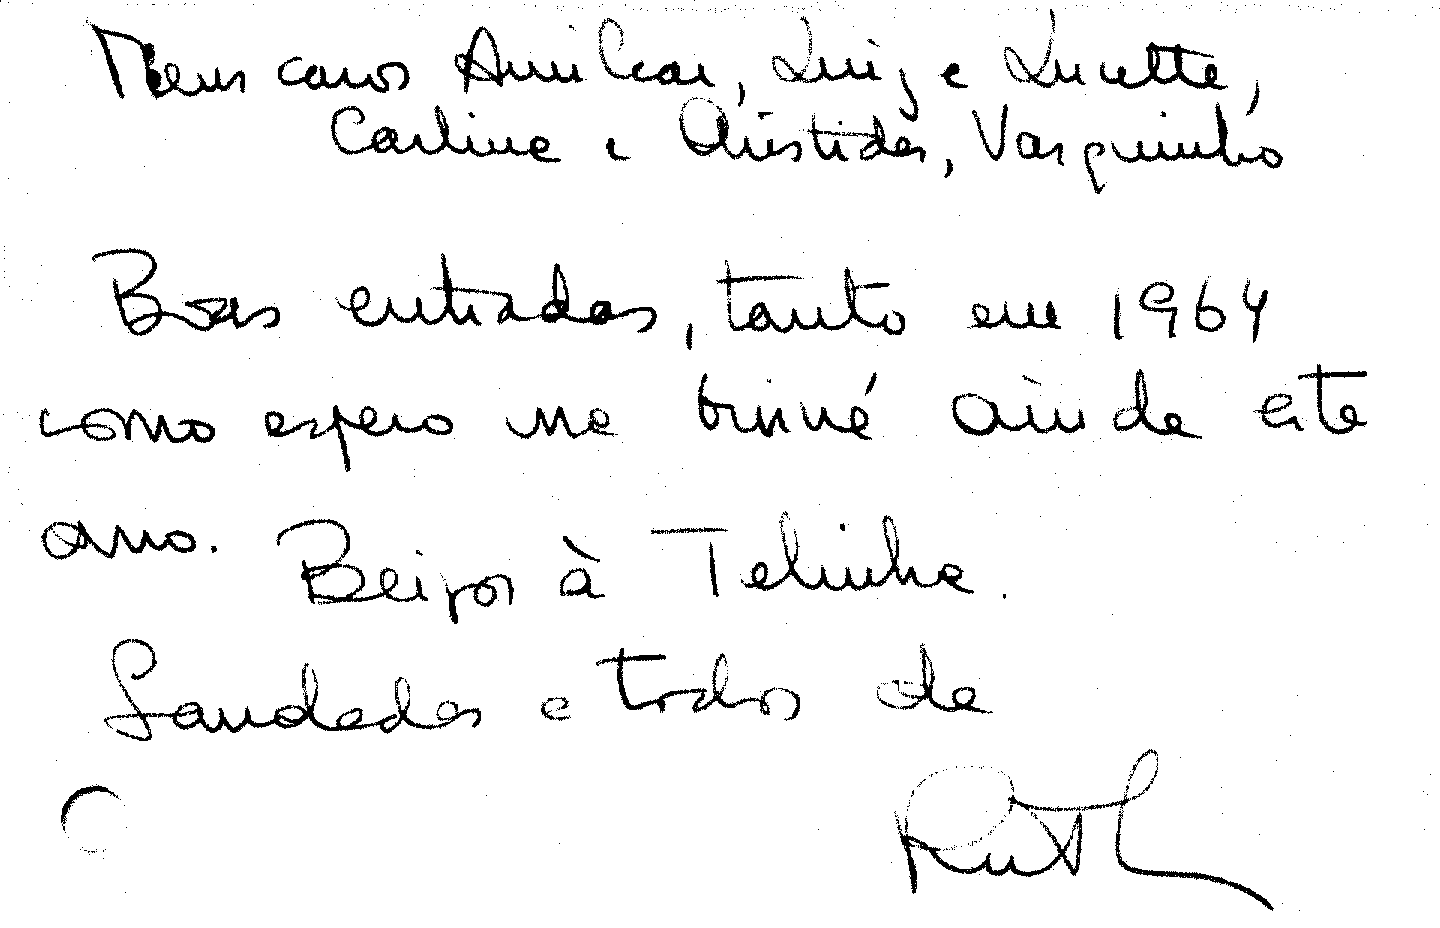 Meus caros Amilcar, Luiz e Lucette,
Carline e Aristides, Vasquinho
Boas entradas, tanto em 1964
como espero me ainda este
ano. Beijos à Telinha.
Saudades e todos de
Ruth